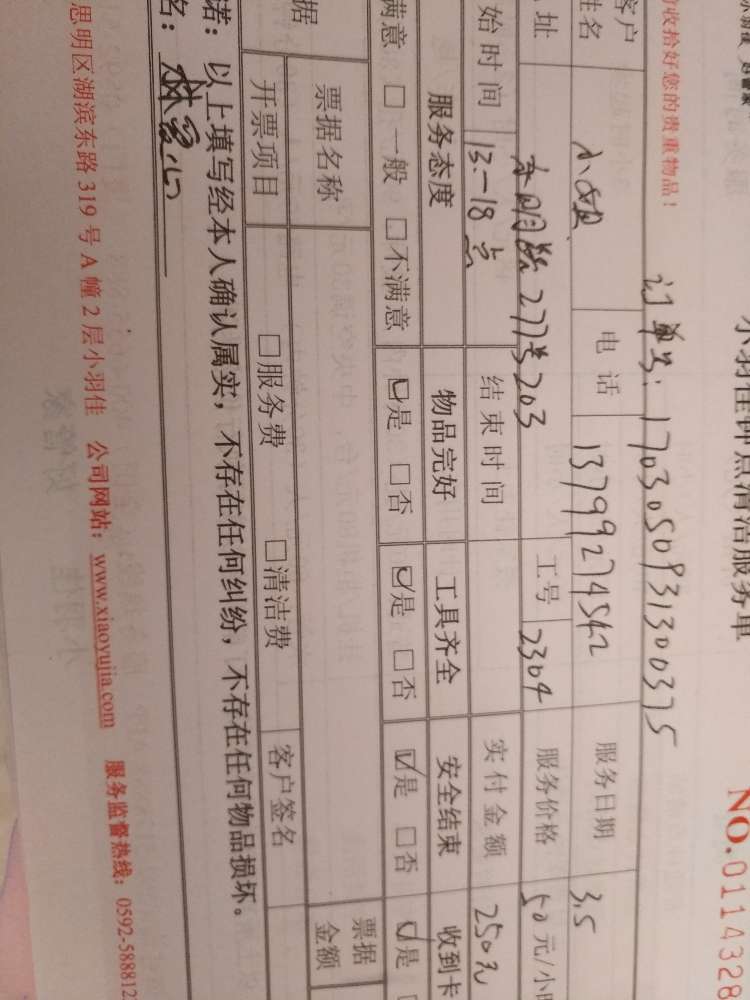 小羽佳钟点清洁服务单
NO.0114328
收拾好您的贵重物品！
订单号：1703050931300375
客户姓名 小姐 电话 13799274542 服务日期 3.5
址 277号203 工号 2304 服务价格 50元/小时
始时间 13-18点 结束时间 实付金额 250元
服务态度 物品完好 工具齐全 安全结束 收到卡
满意 □一般 □不满意 ☑是 □否 ☑是 □否 ☑是 □否 ☑是
据 票据名称 票据金额
开票项目 □服务费 □清洁费 客户签名
诺：以上填写经本人确认属实，不存在任何纠纷，不存在任何物品损坏。
名：
思明区湖滨东路 319 号 A 幢 2 层小羽佳 公司网站：www.xiaoyujia.com 服务监督热线：0592-588812